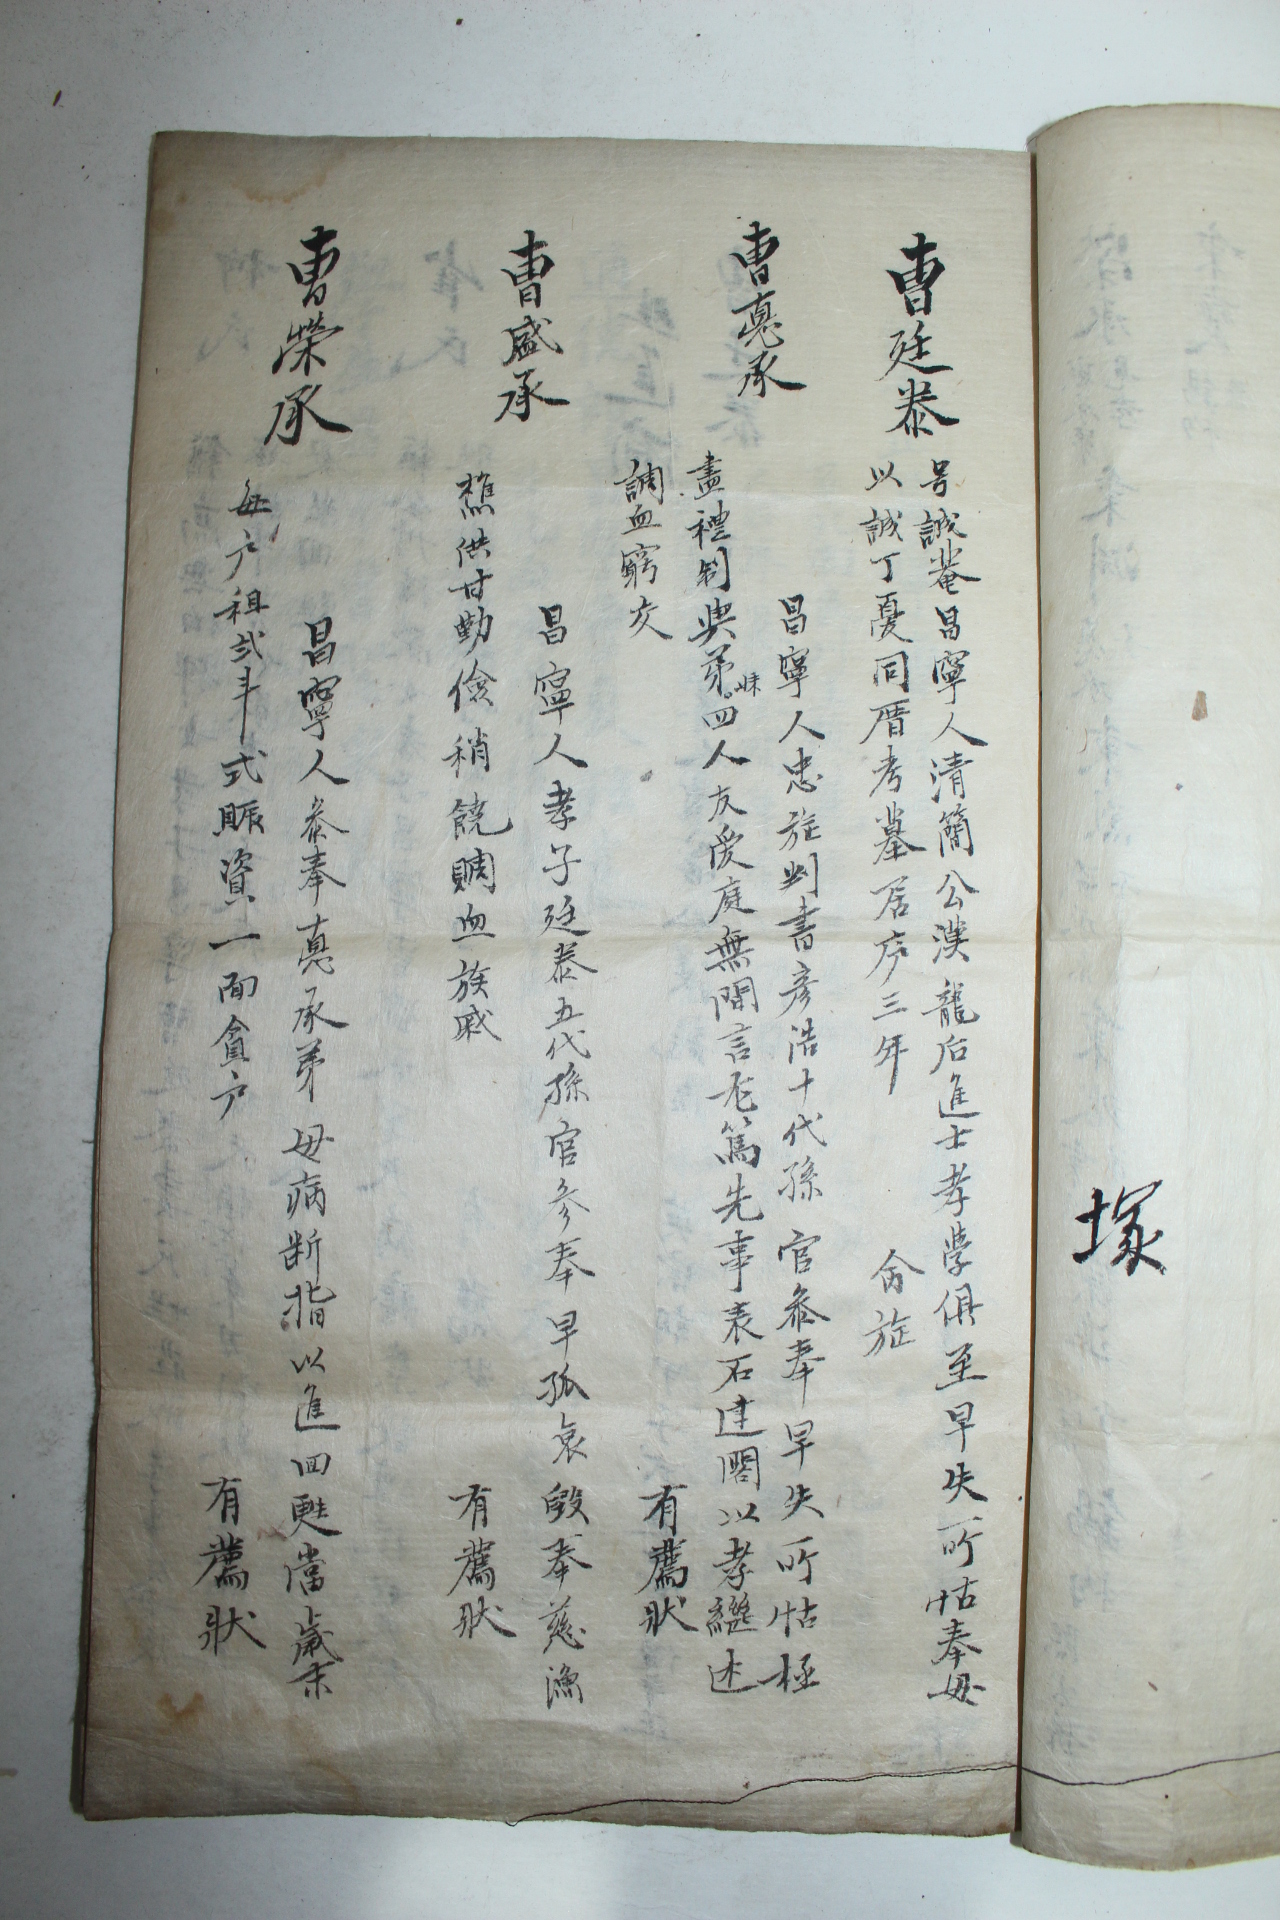 塚
曺廷泰
号誠菴昌寧人清簡公漢龍后進士孝學俱至早失所怙奉母
以誠丁憂同厝考墓居庐三年 命旌
曺悳承
昌寧人忠旌判書彦浩十代孫官叅奉早失所怙極
盡禮制與弟妹四人友愛庭無間言尤篤先事表石建閣以孝繼述
調血窮交 有薦狀
曺盛承
昌寧人孝子廷泰五代孫官参奉早孤哀毁奉慈漁
樵供甘勤儉稍饒賙血族戚 有薦狀
曺榮承
昌寧人叅奉悳承弟母病断指以進回甦當歲末
每户租弍斗式賑資一面貧户 有薦狀